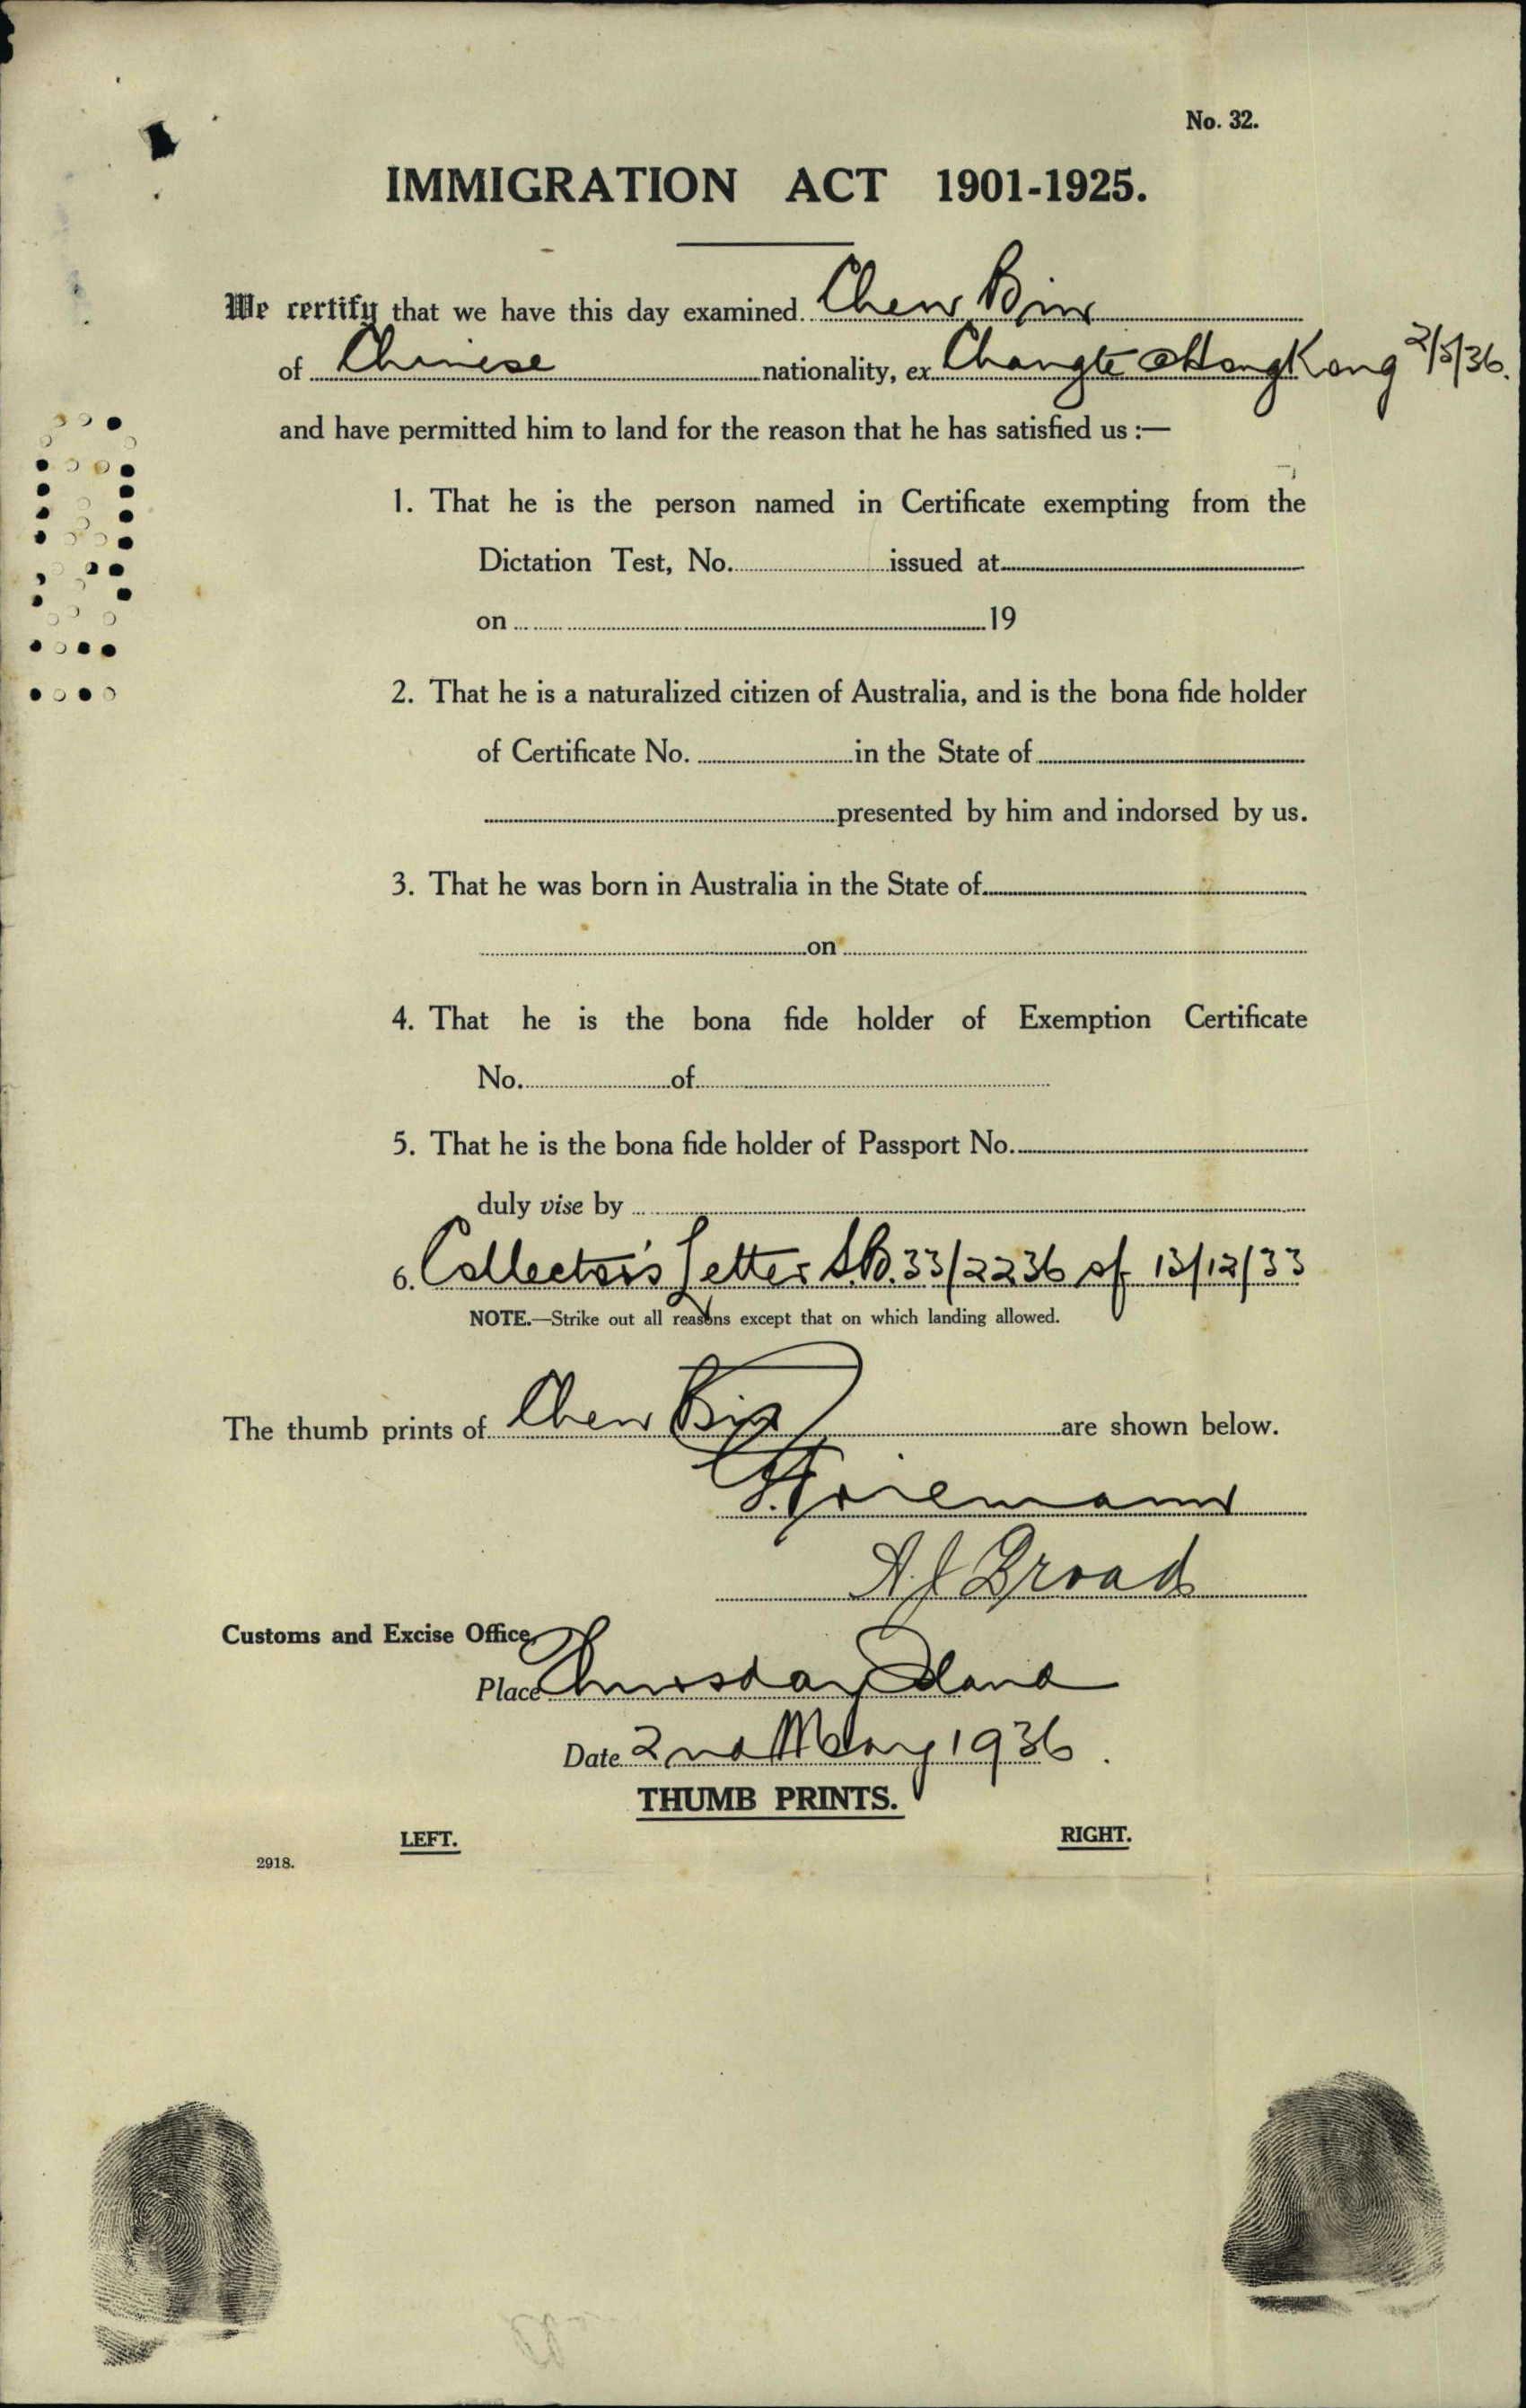 No. 32.
IMMIGRATION ACT 1901-1925.
We certify that we have this day examined Chew Bin
of Chinese nationality, ex Changte Hong Kong 2/5/36.
and have permitted him to land for the reason that he has satisfied us :—
1. That he is the person named in Certificate exempting from the
Dictation Test, No. issued at
on 19
2. That he is a naturalized citizen of Australia, and is the bona fide holder
of Certificate No. in the State of
presented by him and indorsed by us.
3. That he was born in Australia in the State of
on
4. That he is the bona fide holder of Exemption Certificate
No. of
5. That he is the bona fide holder of Passport No.
duly vise by
6. Collector's Letter 33/2236 of 13/12/33
NOTE.—Strike out all reasons except that on which landing allowed.
The thumb prints of Chew Bin are shown below.
A.J Broad
Customs and Excise Office,
Place Thursday Island
Date 2nd May 1936.
THUMB PRINTS.
LEFT. RIGHT.
2918.